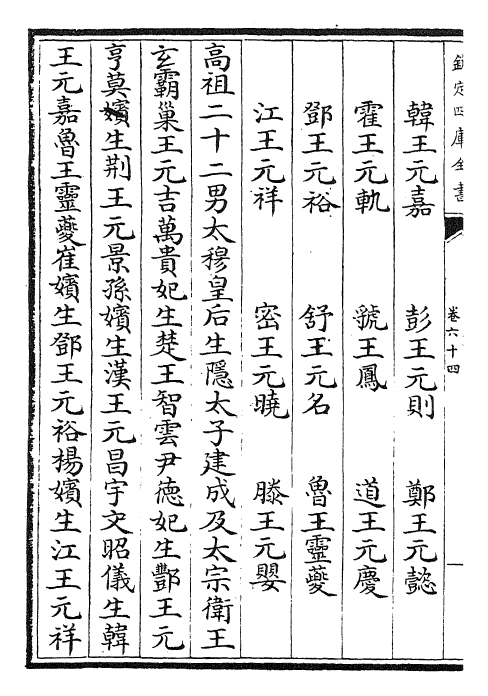 欽定四庫全書
卷六十四
一
韓王元嘉 彭王元則 鄭王元懿
霍王元軌 虢王鳳 道王元慶
鄧王元裕 舒王元名 魯王靈夔
江王元祥 密王元曉 滕王元嬰
高祖二十二男太穆皇后生隱太子建成及太宗衛王
玄霸巢王元吉萬貴妃生楚王智雲尹德妃生酆王元
亨莫嬪生荆王元景孫嬪生漢王元昌宇文昭儀生韓
王元嘉魯王靈夔崔嬪生鄧王元裕楊嬪生江王元祥